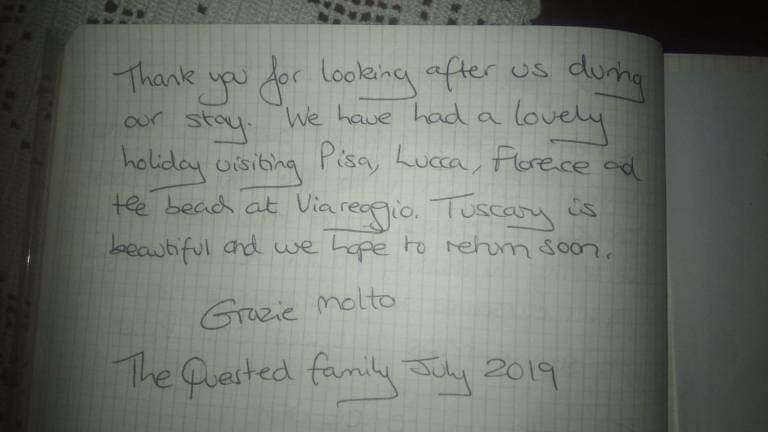 Thank you for looking after us during
our stay. We have had a lovely
holiday visiting Pisa, Lucca, Florence and
the beach at Viareggio. Tuscany is
beautiful and we hope to return soon.
Grazie molto
The Quested family July 2019